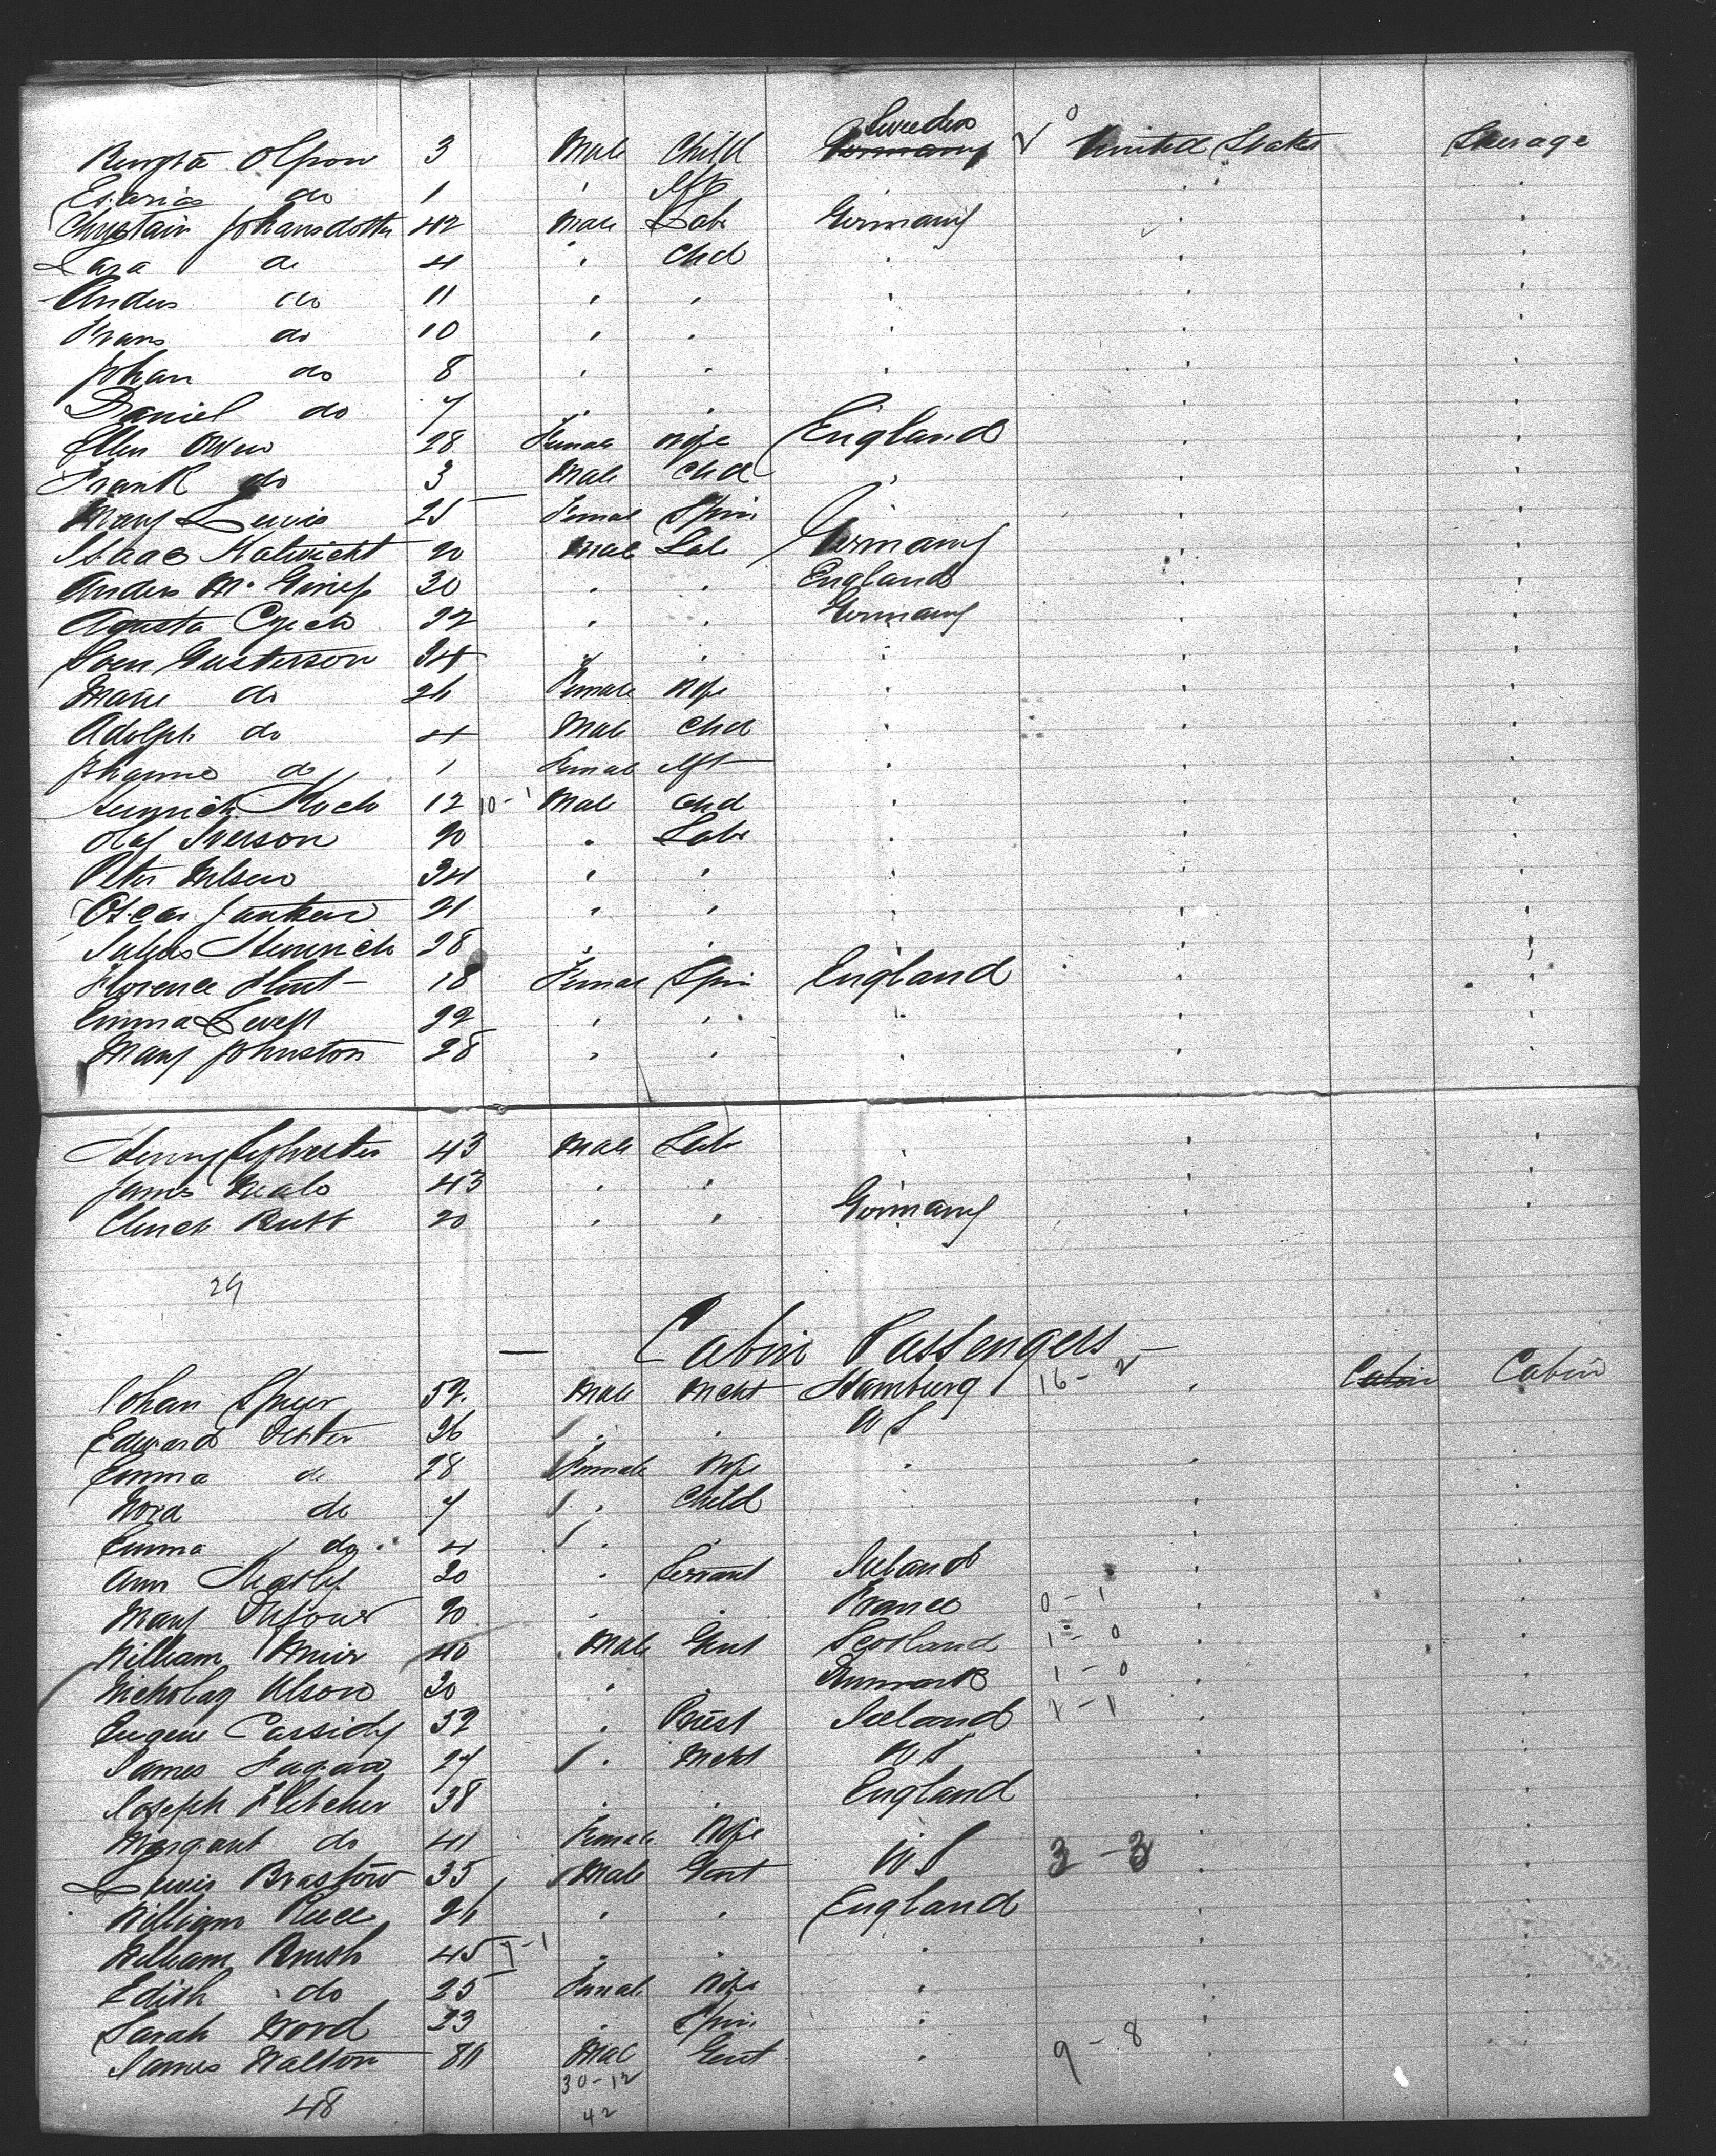 Sweden
Olsson 3 Male Child Germany 0 United States Steerage
do 1 " Inft " "
Johansdotter 42 Male Labr Germany " "
Lara do 4 " Chd " " "
Anders do 11 " " " " "
Frans do 10 " " " " "
Johan do 8 " " " " "
Daniel do 7 " " " "
Ellen Owen 28 Female Wife England " "
Frank do 3 Male Chd " " "
Mary Lewis 25 Female Spin " " "
Isaac 20 Male Lab Germany " "
Anders 30 " " England " "
Agusta 22 " " Germany " "
Sven Gusterson 34 " " " " "
Marie do 26 Female Wife " " "
Adolph do 4 Male Chd " " "
Johanne do 1 Female Inft " " "
Heinrich Koch 12 10-1 Male Chd " " "
Olaf Iverson 20 " Labr " " "
Peter Nelson 34 " " " " "
Oscar 21 " " " " "
Julius Heinrich 28 " " " "
Florence Hunt 18 Female Spin England " "
Emma 22 " " " " "
Mary Johnston 28 " " " " "
Henry Sylvester 43 Male Lab " " "
James 43 " " " " "
20 " " Germany " "
29
Cabin Passengers
Johan Speyer 52 Male Mcht Hamburg 16-2 " Cabin Cabin
Edward 26 " " U S "
Emma do 28 Female Wife " " "
Nora do 7 " Child " " "
Emma do 4 " " " "
Ann 20 " Servant Ireland "
Mary 20 " " France 0-1 " "
William Muir 40 Male Gent Scotland 1-0 " "
Nicholas Olson 30 " " Denmark 1-0 " "
Eugene Cassidy 52 " Priest Ireland 1-1 " "
James Fagan 27 " Mcht U S "
Joseph Fletcher 38 " " England " "
Margaret do 41 Female Wife " "
Lewis Brastow 35 Male Gent U S 3-3 " "
William 26 " " England " "
William 45 1-1 " " " " "
Edith do 25 Female Wife " " "
Sarah Wood 23 " Spin " " "
James Walton Male Gent " 9-8 " "
30-12
48 42